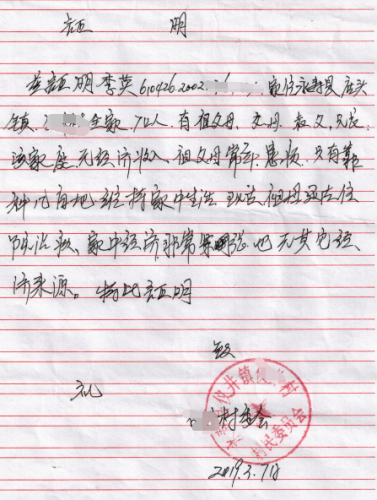 证 明
兹证明李英610426.2002. 家住永寿县店头
镇, 全家7口人,有祖父母、父母、叔父、兄长
该家庭无经济收入,祖父母常年患病,只有靠
种几亩地维持家中生活,现在祖母还在住
院治疗,家中经济非常紧张,也无其它经
济来源。特此证明
致
礼
村委会
仪井镇 村
村民委员会
2019.3.7日